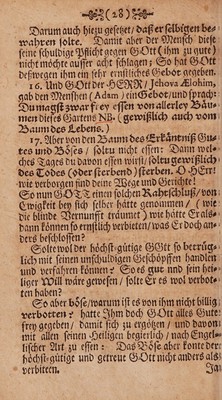 (28)
Darum auch hiezu gesetzet / daß er selbigen be-
wahren solte. Damit aber der Mensch diese
seine schuldige Pflicht gegen GOtt (ihm zu gut)
nicht möchte ausser acht schlagen; So hat GOtt
deßwegen ihm ein sehr ernstliches Gebot gegeben.
16. Und GOtt der HERR / Jehova Ælohim,
gab den Menschen (Adam) ein Gebot / und sprach:
Du magst zwar frey essen von allerley Bäu-
men dieses Gartens NB. (gewißlich auch vom
Baum des Lebens.)
17. Aber von dem Baum des Erkäntniß Gu-
tes und Böses / soltu nicht essen: Dann wel-
ches Tages du davon essen wirst / soltu gewißlich
des Todes (oder sterbend) sterben. O HErr!
wie verborgen sind deine Wege und Gerichte!
So nun GOTT einen solchen Rahtschluß / von
Ewigkeit bey sich selber hätte genommen / (wie
die blinde Vernunfft träumet) wie hätte Er als-
dann können so ernstlich verbieten / was Er doch an-
ders beschlossen?
Solte wol der höchst-gütige GOtt so betrüg-
lich mit seinen unschuldigen Geschöpffen handlen
und verfahren können? So es gut und sein hei-
liger Will wäre gewesen / solte Er es wol verbo-
ten haben?
So aber böse / warum ist es von ihm nicht billig
verbotten? hatte Ihm doch GOtt alles Gute
frey gegeben / damit sich zu ergötzen / und davon
mit allen seinen Heiligen begierlich / nach Engel-
lischer Art zu essen: Das Böse aber konte der
höchst-gütige und getreue GOtt nicht anders als
verbieten.
Ja